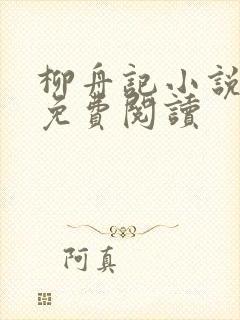 柳舟記小說
免費閱讀
阿真